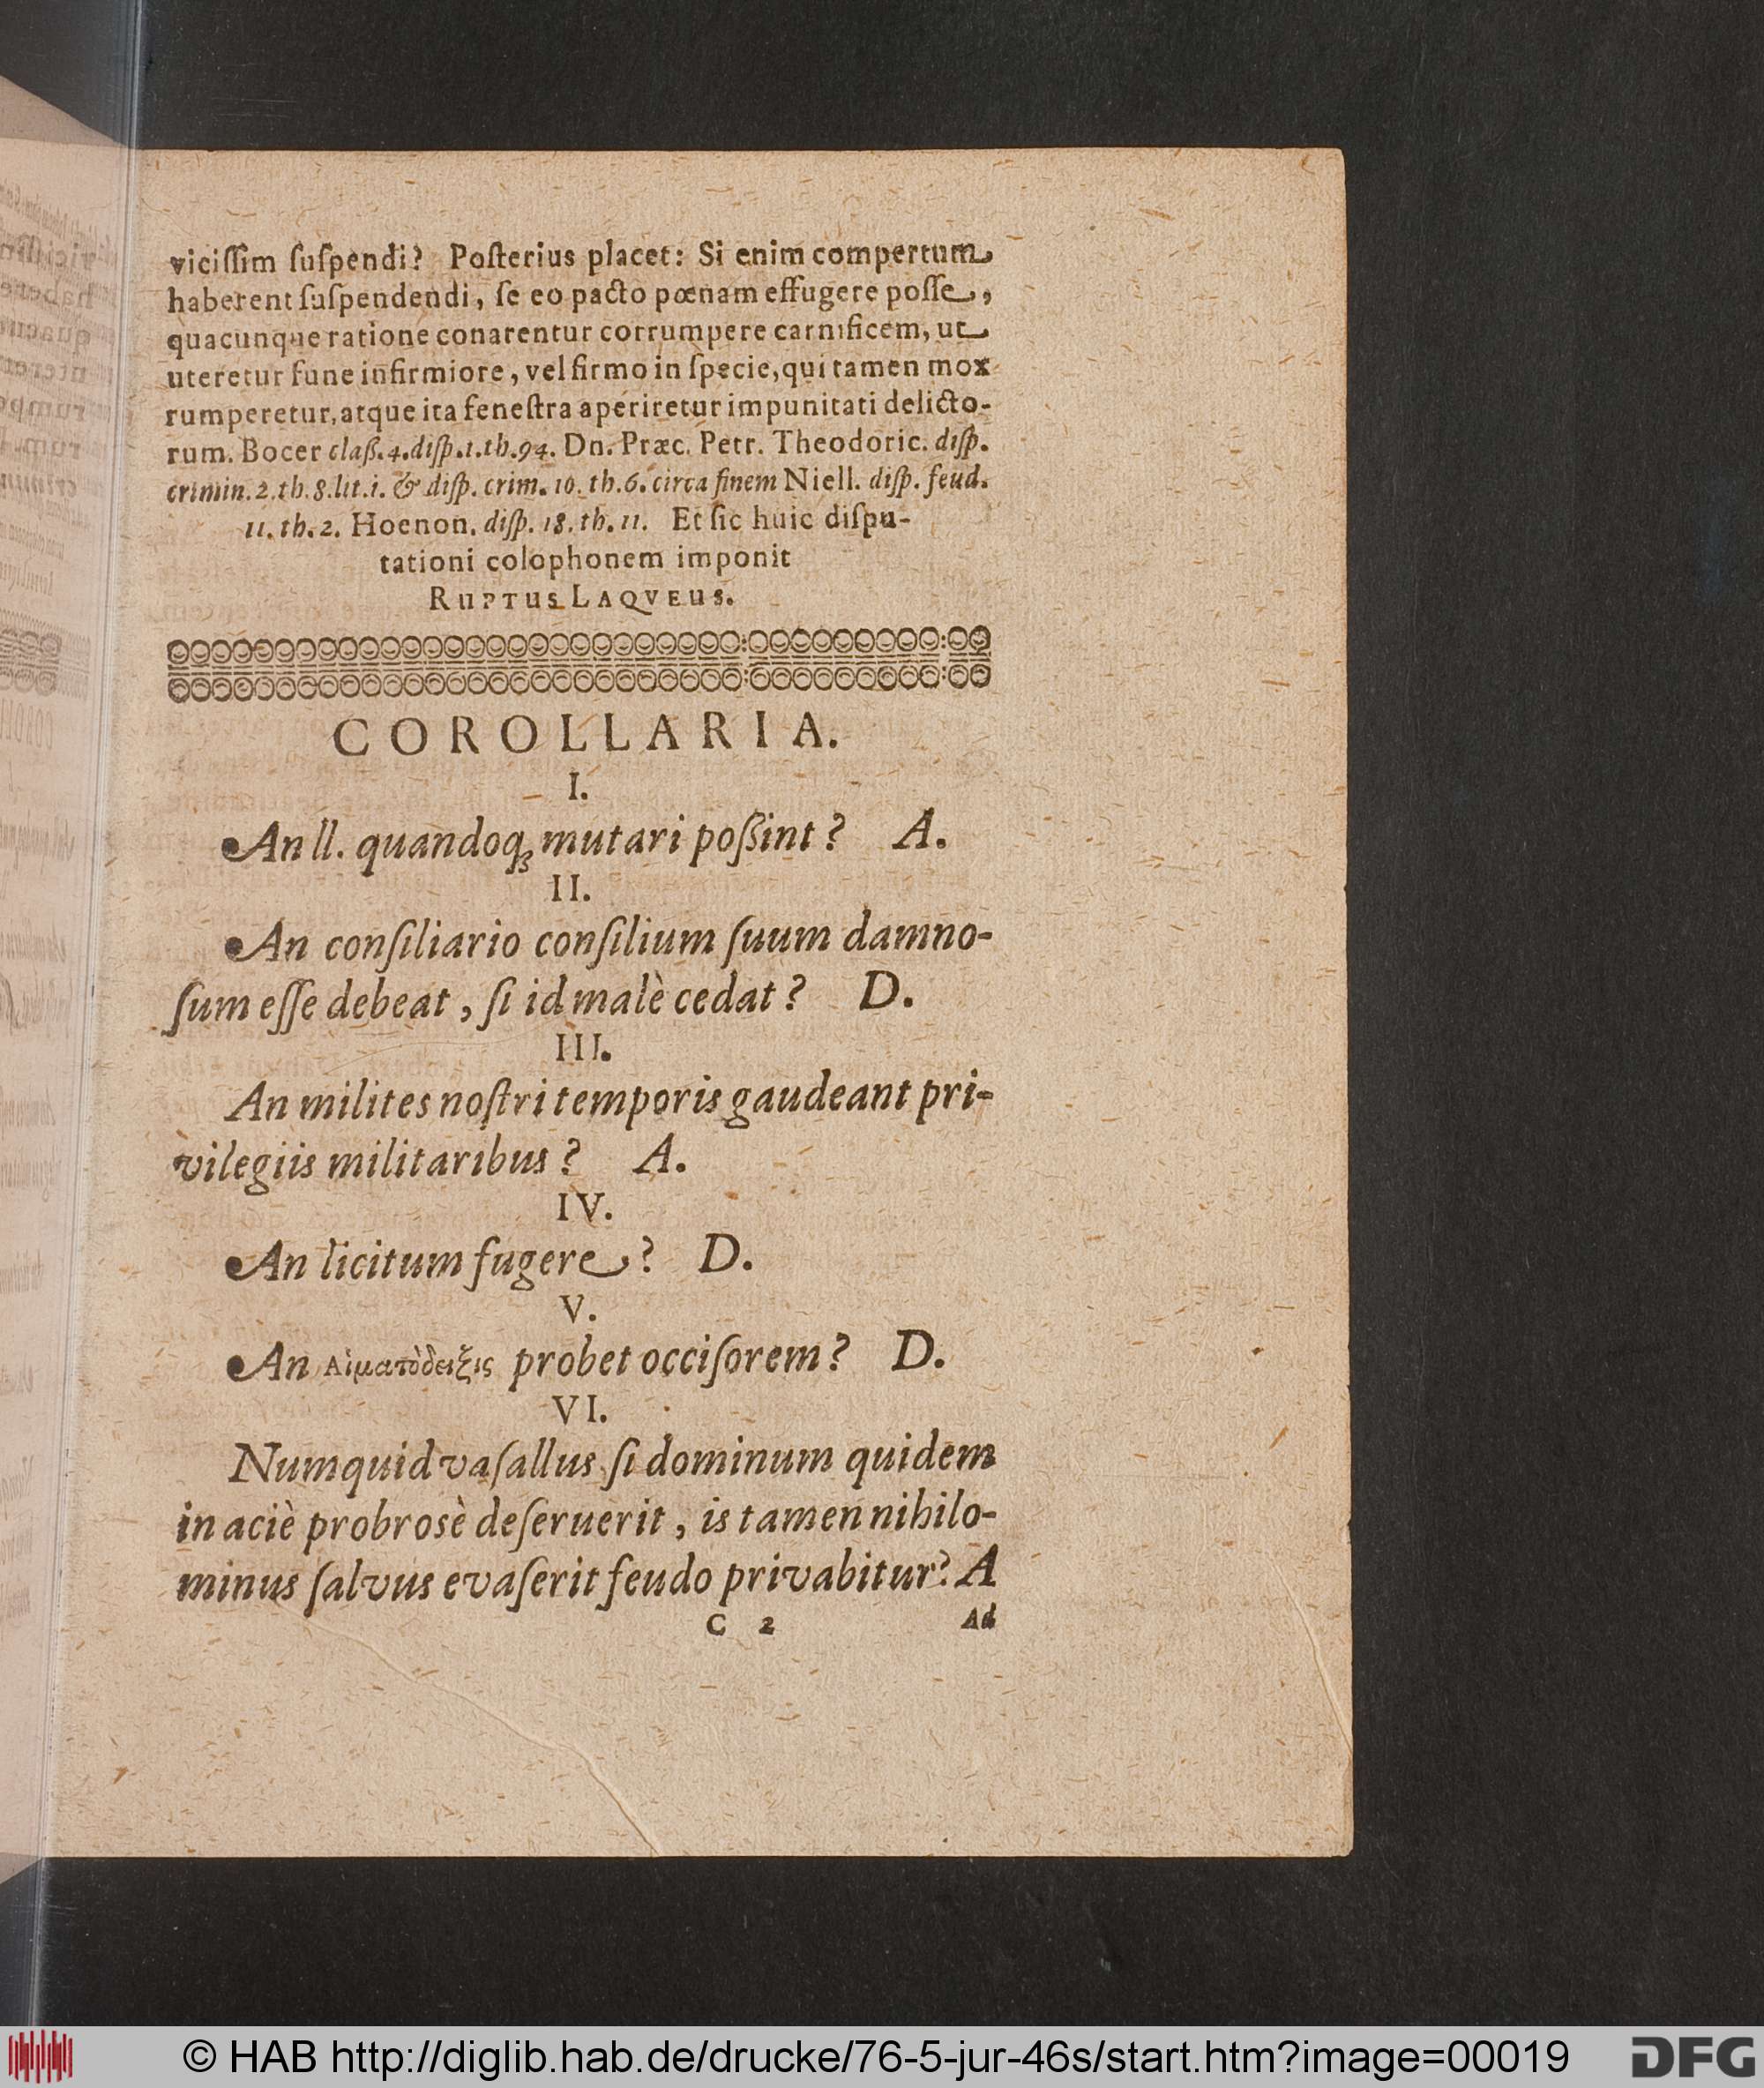 viciſſim ſuſpendi? Poſterius placet: Si enim compertum
haberent ſuſpendendi, ſe eo pacto pœnam effugere poſſe,
quacunque ratione conarentur corrumpere carnificem, ut
uteretur fune infirmiore, vel firmo in ſpecie, qui tamen mox
rumperetur, atque ita feneſtra aperiretur impunitati delicto-
rum. Bocer claſſ. 4. diſp. 1. th. 94. Dn. Præc. Petr. Theodoric. diſp.
crimin. 2. th. 8. lit. i. & diſp. crim. 10. th. 6. circa finem Niell. diſp. feud.
11. th. 2. Hoenon. diſp. 18. th. 11. Et ſic huic diſpu-
tationi colophonem imponit
RUPTUS LAQVEUS.
COROLLARIA.
I.
An ll. quandoq; mutari poßint? A.
II.
An conſiliario conſilium ſuum damno-
ſum eſſe debeat, ſi id malè cedat? D.
III.
An milites noſtri temporis gaudeant pri-
vilegiis militaribus? A.
IV.
An licitum fugere? D.
V.
An Αἱματόδειξις probet occiſorem? D.
VI.
Numquid vaſallus ſi dominum quidem
in aciè probrosè deſeruerit, is tamen nihilo-
minus ſalvus evaſerit feudo privabitur? A
C 2 Ad
© HAB http://diglib.hab.de/drucke/76-5-jur-46s/start.htm?image=00019
DFG